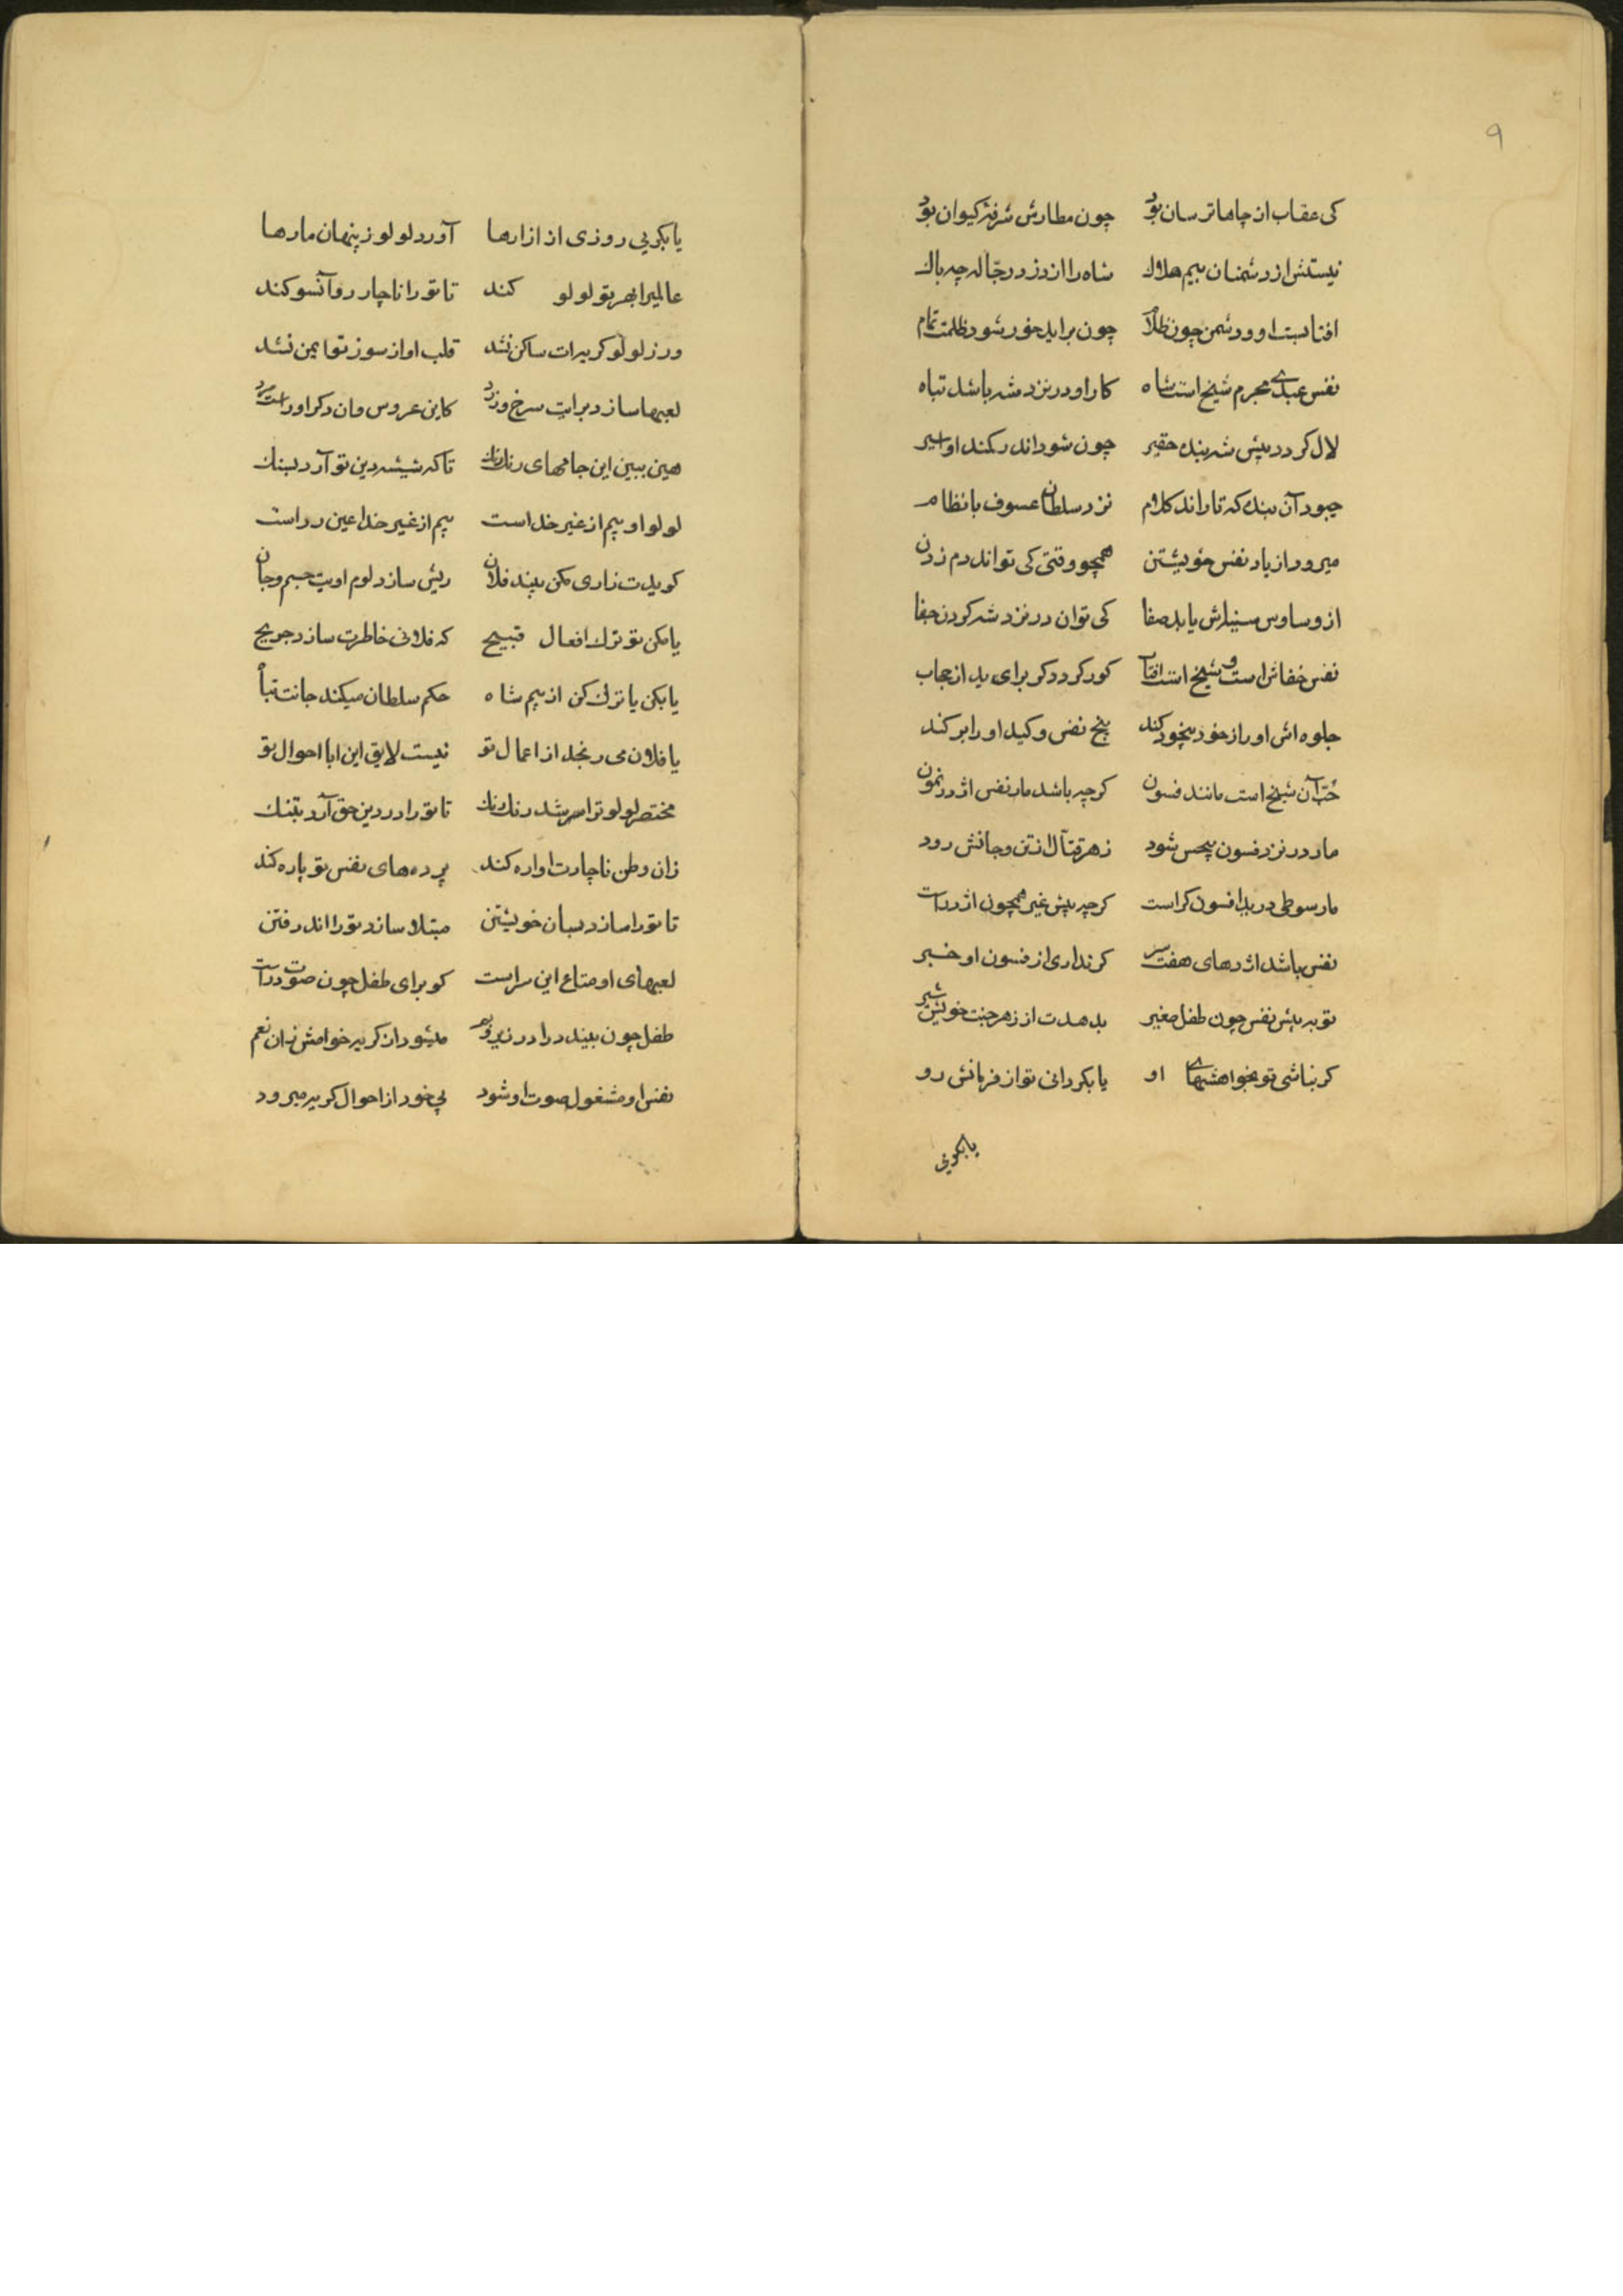 ۹
کی عقاب از چاها ترسان بود چون مطارش شرفهٔ کیوان بود
نیستش از دشمنان بیم هلاك شاه را از دزد و رجّاله چه باك
افتابست او و دشمن چون ظلام چون براید خور شود ظلمت تمام
نفس عبدی مجرم شیخ است شاه کار او در نزد شه باشد تباه
لال کردد پیش شه بنده حقیر چون شود اندر کمند او اسیر
چبود آن بنده که تا راند کلام نزد سلطان عسوف با نظام
میرود از یاد نفس خویشتن همچو وقتی کی تواند دم زدن
از وساوس سینه‌اش یابد صفا کی توان در نزد شه کردن جفا
نفس خفاش است و شیخ است افتاب کور کردد کر برای ید از حجاب
جلوه‌اش او را ز خود بیخود کند بیخ نفس و کید او را بر کند
حُبّ آن شیخ است مانند فسون کرچه باشد مار نفس اژدر نمون
مار در نزد فسون بیحس شود زهر قتّال از تن و جانش رود
مار سوطی در ید افسون کر است کرچه پیش غیر همچون اژدر است
نفس باشد اژدهای هفت سر کر نداری از فسون او خبر
تو به پیش نفس چون طفل صغیر بدهدت از زهر جنت خویش شیر
کر نباشی تو بخواهشهای او یا بکردانی تو از فرمانش رو
یا بکویی
یا بکویی روزی از ازارها آورد لولو ز پنهان مارها
عالمیرا بهر تو لولو کند تا تو را ناچار رو آنسو کند
ور ز لولو کریه‌ات ساکن نشد قلب او از سوز تو ایمن نشد
لعبها سازد برایت سرخ و زرد کاین عروس و ان دکر او راست مرد
هین ببین این جامهای رنك رنك تا که شیشه دین تو آرد بسنك
لولو او بیم از غیر خداست بیم از غیر خدا عین رداست
کویدت زاری مکن بیند فلان ریش سازد لوم اویت جسم و جان
یا مکن تو ترك افعال قبیح که فلانی خاطرت سازد جریح
یا بکن یا ترك کن از بیم شاه حکم سلطان میکند جانت تباه
یا فلان می رنجد از اعمال تو نیست لایق این ابا احوال تو
مختصر لولو ترا سرشد رنك رنك تا تو را در دین حق آرد بتنك
زان وطن ناچارت اواره کند پرده‌های نفس تو پاره کند
تا تو را سازد بسان خویشتن مبتلا سازد تو را اندر فتن
لعبهای او متاع این سراست کو برای طفل چون صوت دراست
طفل چون بیند درا در زیر و بم میشود از کریه خوامش زان نغم
نفس او مشغول صوت او شود بی خود از احوال کریه میرود